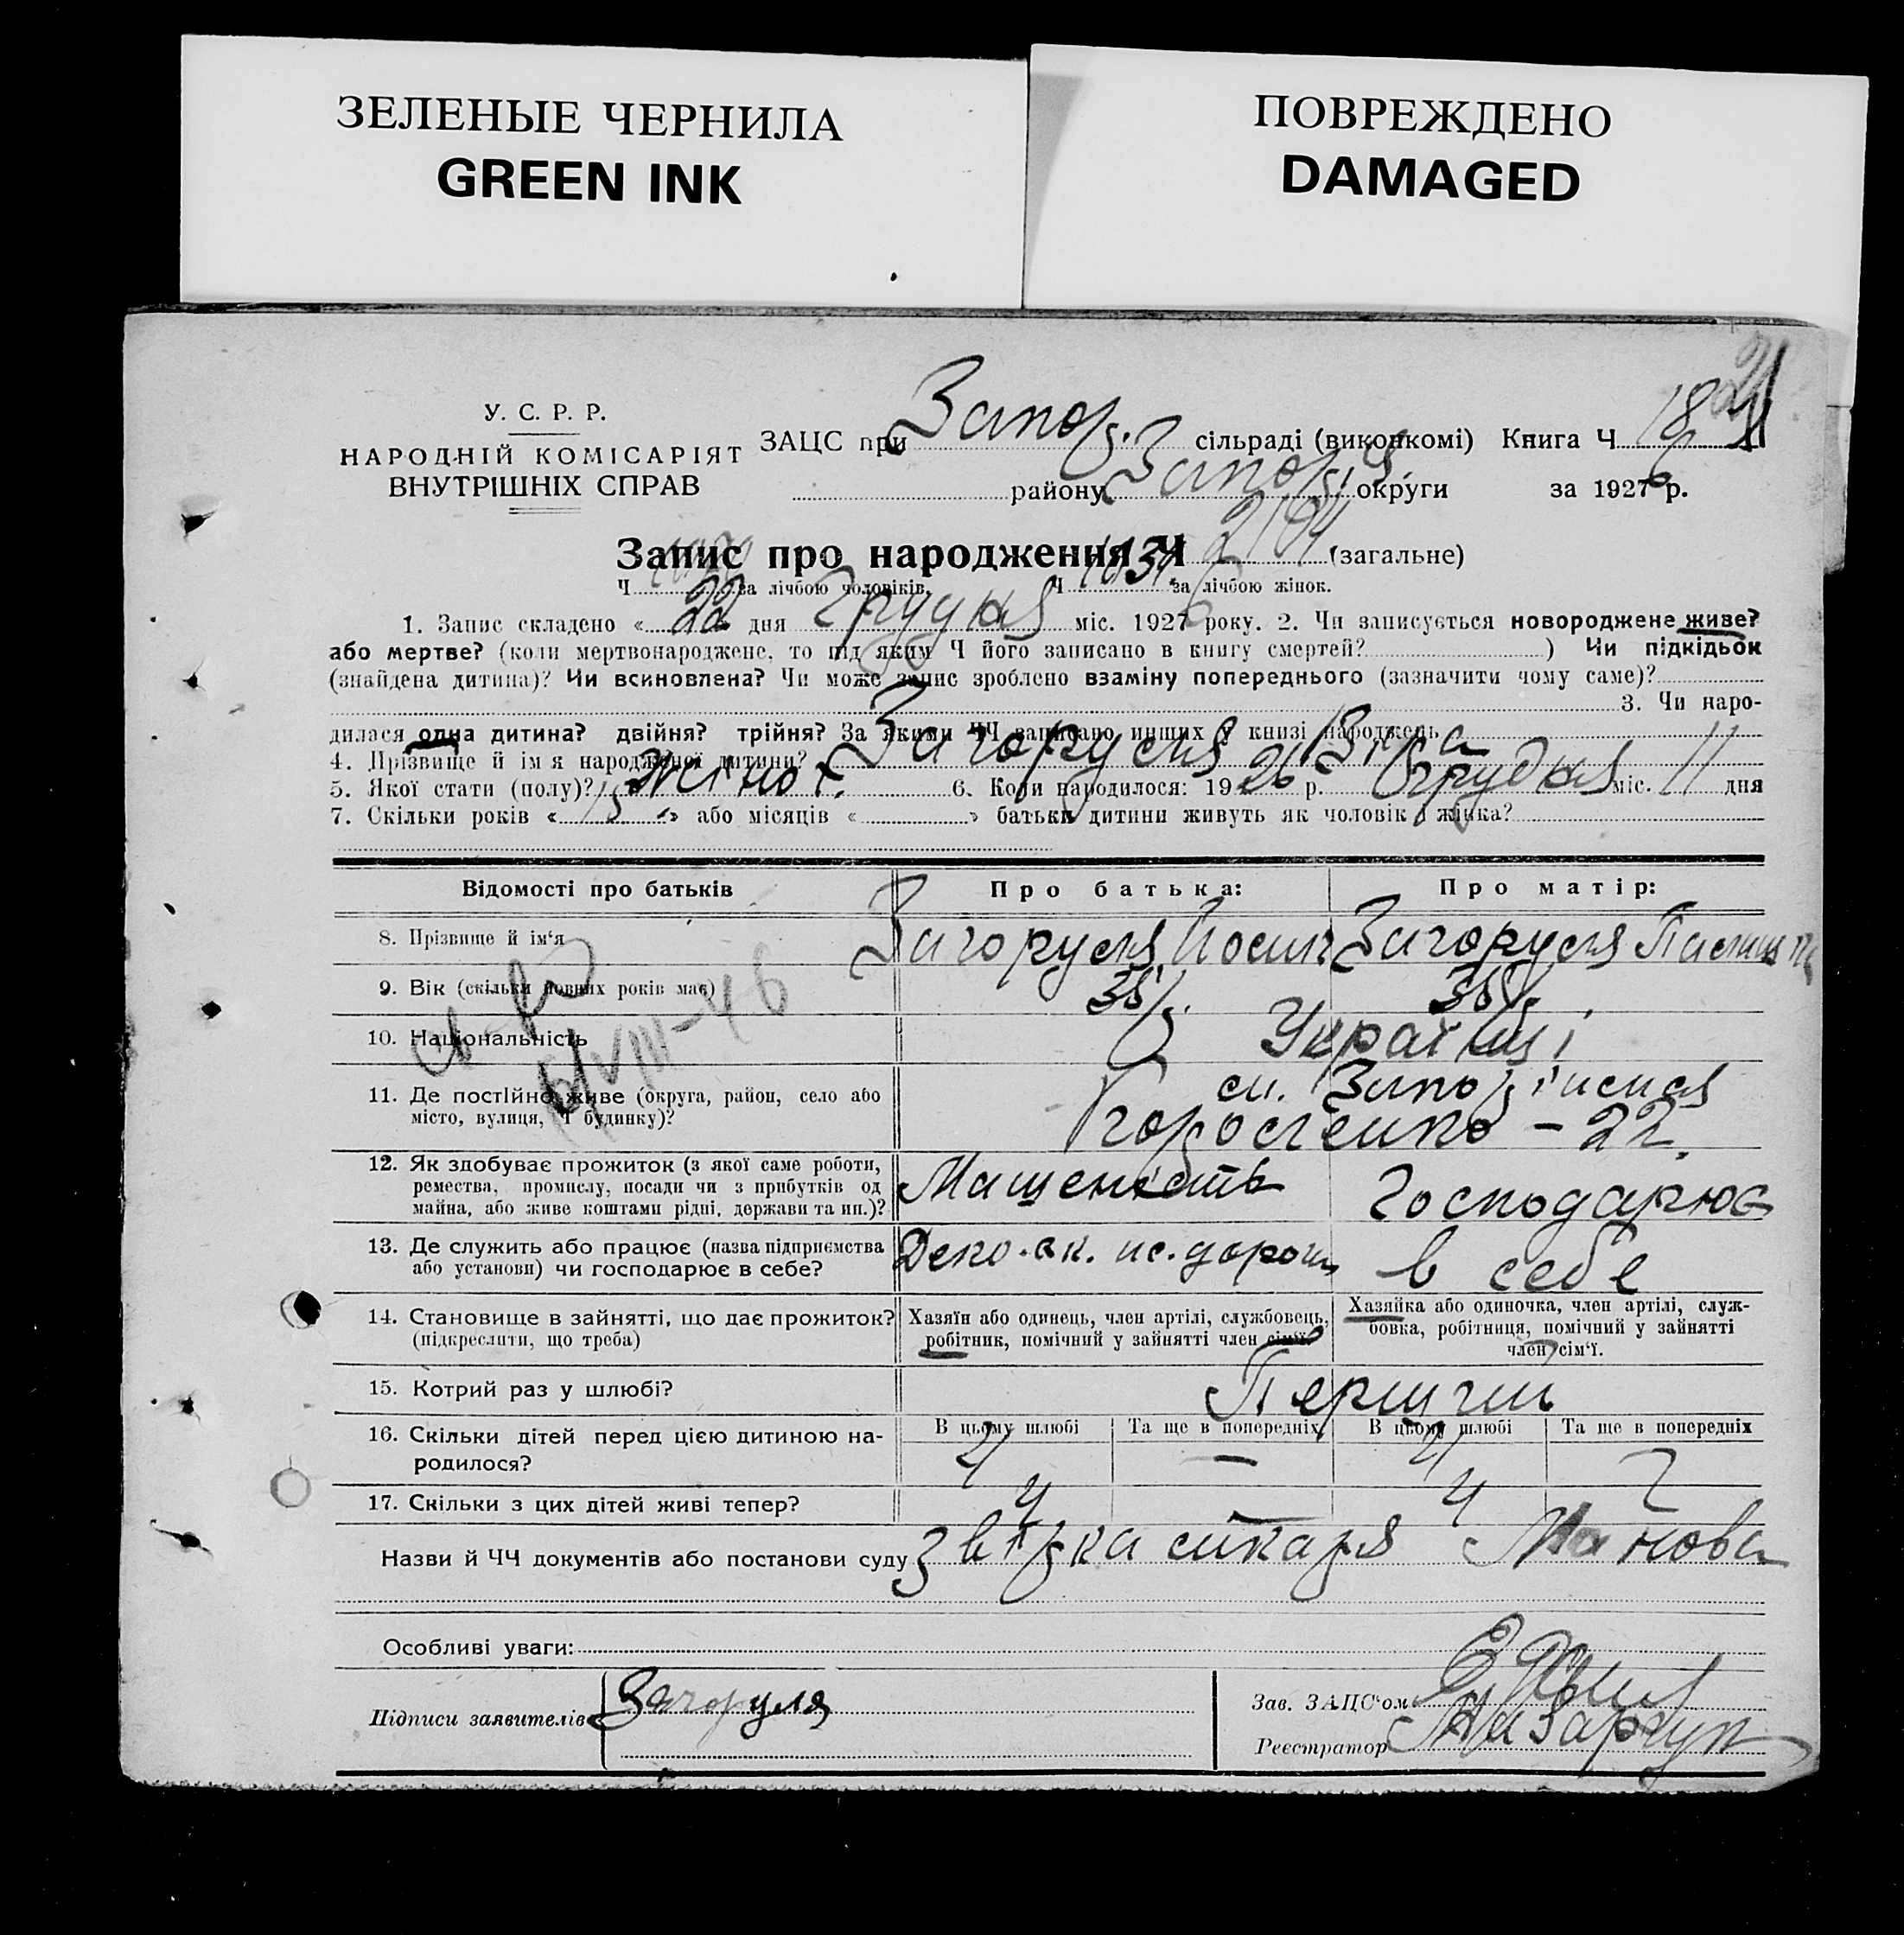 ЗЕЛЕНЫЕ ЧЕРНИЛА
GREEN INK
ПОВРЕЖДЕНО
DAMAGED
У. С. Р. Р.
НАРОДНІЙ КОМІСАРІЯТ
ВНУТРІШНІХ СПРАВ
ЗАЦС при Запор. сільраді (виконкомі) Книга Ч 18
району Запоріз. округи за 1926 р.
Запис про народження Ч 2194 (загальне)
Ч за лічбою чоловіків. Ч 1031 за лічбою жінок.
1. Запис складено « 22 дня Грудня міс. 1926 року. 2. Чи записується новороджене живе?
або мертве? (коли мертвонароджене, то під яким Ч його записано в книгу смертей? ) Чи підкідьок
(знайдена дитина)? Чи всиновлена? Чи може запис зроблено взаміну попереднього (зазначити чому саме)?
3. Чи наро-
дилася одна дитина? двійня? трійня? За якими ЧЧ записано инших у книзі народжень
4. Прізвище й ім'я народженої дитини? Загоруля Віра
5. Якої стати (полу)? Жіноч. 6. Коли народилося: 1926 р. Грудня міс. 11 дня
7. Скільки років « 15 » або місяців « » батьки дитини живуть як чоловік і жінка?
Відомості про батьків
Про батька:
Про матір:
8. Прізвище й ім'я
Загоруля Йосип
Загоруля
9. Вік (скільки повних років має)
35 р.
35 р.
10. Національність
Українці
6/VIII-46
11. Де постійно живе (округа, район, село або
місто, вулиця, Ч будинку)?
ст. Запоріжжя
- 22
12. Як здобуває прожиток (з якої саме роботи,
ремества, промислу, посади чи з прибутків од
майна, або живе коштами рідні, держави та ин.)?
Господарює
13. Де служить або працює (назва підприємства
або установи) чи господарює в себе?
Депо
в себе
14. Становище в зайнятті, що дає прожиток?
(підкреслити, що треба)
Хазяїн або одинець, член артілі, службовець,
робітник, помічний у зайнятті член сім'ї.
Хазяйка або одиночка, член артілі, служ-
бовка, робітниця, помічний у зайнятті
член сім'ї.
15. Котрий раз у шлюбі?
Першчий
16. Скільки дітей перед цією дитиною на-
родилося?
В цьому шлюбі
Та ще в попередніх
В цьому шлюбі
Та ще в попередніх
4
—
4
17. Скільки з цих дітей живі тепер?
4
4
Назви й ЧЧ документів або постанови суду
Особливі уваги:
Підписи заявителів
Загоруля
Зав. ЗАЦС'ом
Реєстратор Назарчук